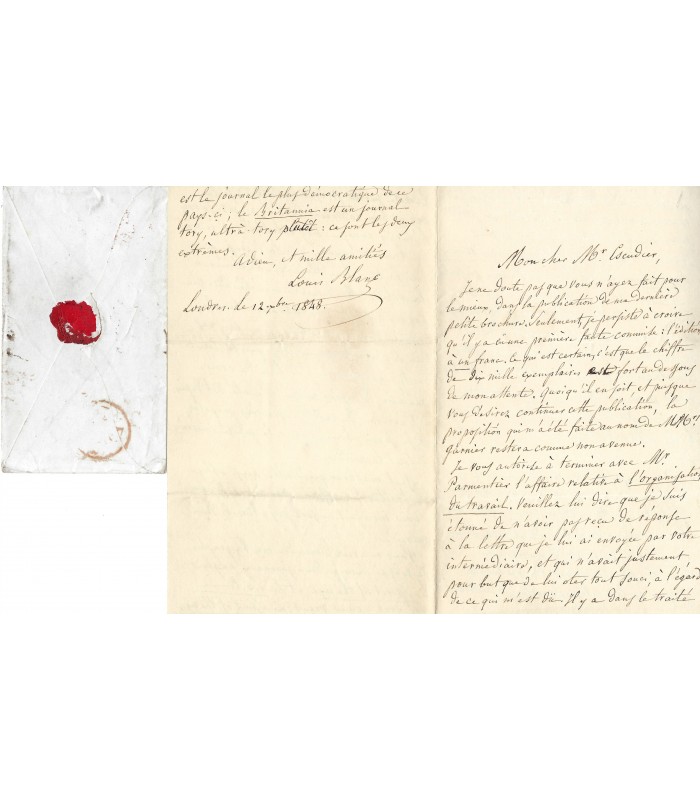 est le journal le plus démocratique de ce
pays-ci ; le Britannia est un journal
tory, ultrà-tory plutôt : ce sont les deux
extrêmes.
Adieu, et mille amitiés
Louis Blanc
Londres. le 12 xbre 1848.
Mon cher Mr Escudier,
Je ne doute pas que vous n'ayez fait pour
le mieux, dans la publication de ma dernière
petite brochure. Seulement, je persiste à croire
qu'il y a eu une première faute commise : l'édition
à un franc. Ce qui est certain, c'est que le chiffre
de dix mille exemplaires est fort au dessous
de mon attente. Quoiqu'il en soit et puisque
vous desirez continuer cette publication, la
proposition qui m'a été faite au nom de MM.
garnier restera comme non avenue.
Je vous autorise à terminer avec Mr.
Parmentier l'affaire relative à l'organisation
du travail. Veuillez lui dire que je suis
étonné de n'avoir pas reçu de réponse
à la lettre que je lui ai envoyée par votre
intermédiaire, et qui n'avait justement
pour but que de lui oter tout souci, à l'égard
de ce qui m'est dû. Il y a dans le traité